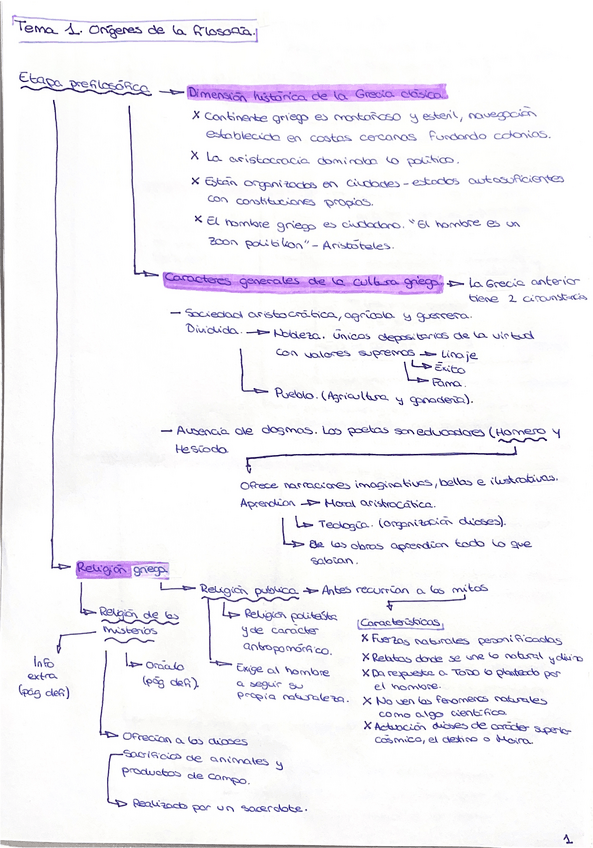 Tema 1. Orígenes de la filosofía.
Etapa prefilosófica → Dimensión histórica de la Grecia clásica
x Continente griego es montañoso y esteril, navegación
establecida en costas cercanas fundando colonias.
x La aristocracia dominaba lo político.
x Están organizados en ciudades-estados autosuficientes
con constituciones propias.
x El hombre griego es ciudadano. "El hombre es un
zoon politikon" - Aristóteles.
Caracteres generales de la cultura griega → La Grecia anterior
tiene 2 circunstancias
- Sociedad aristocrática, agrícola y guerrera.
Dividida. → Nobleza. únicos depositarios de la virtud
con valores supremos → Linaje
→ Éxito
→ Fama.
→ Pueblo. (Agricultura y ganadería).
- Ausencia de dogmas. Los poetas son educadores (Homero y
Hesíodo
Ofrece narraciones imaginativas, bellas e ilustrativas.
Aprendían → Moral aristrocática.
→ Teología. (organización dioses).
→ De las obras aprendían todo lo que
sabían.
Religión griega
→ Religión publica → Antes recurrían a los mitos
→ Religión politeista
y de carácter
antropomórfico.
→ Exige al hombre
a seguir su
propia naturaleza.
Características
x Fuerzas naturales personificadas
x Relatos donde se une lo natural y divino
x Da respuesta a TODO lo planteado por
el hombre.
x No ven los fenomenos naturales
como algo científico.
x Actuación dioses de carácter superior
cósmico, el destino o Moira.
→ Religión de los
misterios
Info
extra
(pág def)
→ Oráculo
(pág def).
→ Ofrecían a los dioses
sacrificios de animales y
productos de campo.
→ Realizado por un sacerdote.
1